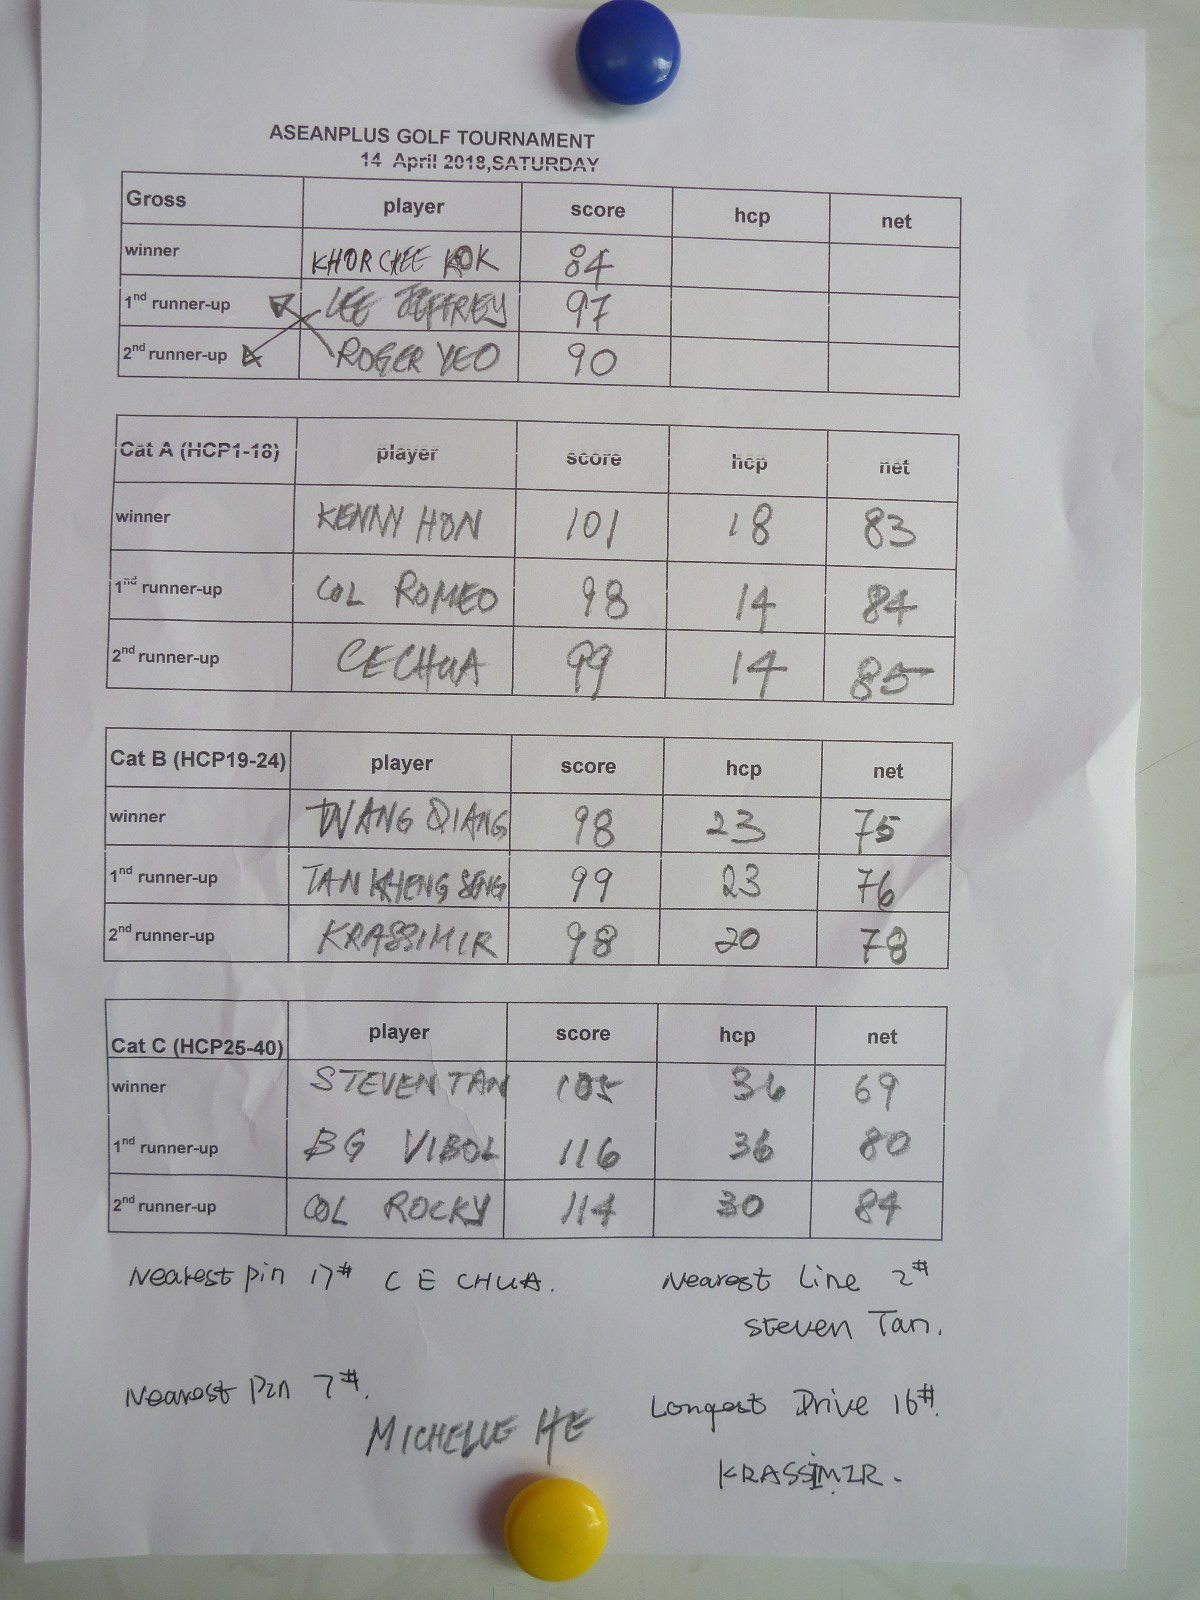 ASEANPLUS GOLF TOURNAMENT
14 April 2018,SATURDAY
Gross player score hcp net
winner KHOR CHEE KOK 84
1nd runner-up LEE JEFFREY 97
2nd runner-up ROGER YEO 90
Cat A (HCP1-18) player score hcp net
winner KENNY HON 101 18 83
1nd runner-up COL ROMEO 98 14 84
2nd runner-up CECHUA 99 14 85
Cat B (HCP19-24) player score hcp net
winner WANG QIANG 98 23 75
1nd runner-up TAN KHENG SENG 99 23 76
2nd runner-up KRASSIMIR 98 20 78
Cat C (HCP25-40) player score hcp net
winner STEVEN TAN 105 36 69
1nd runner-up BG VIBOL 116 36 80
2nd runner-up COL ROCKY 114 30 84
Nearest pin 17# C E CHUA. Nearest Line 2#
Steven Tan.
Nearest Pin 7#. Longest Drive 16#.
MICHELLE HE
KRASSIMIR.